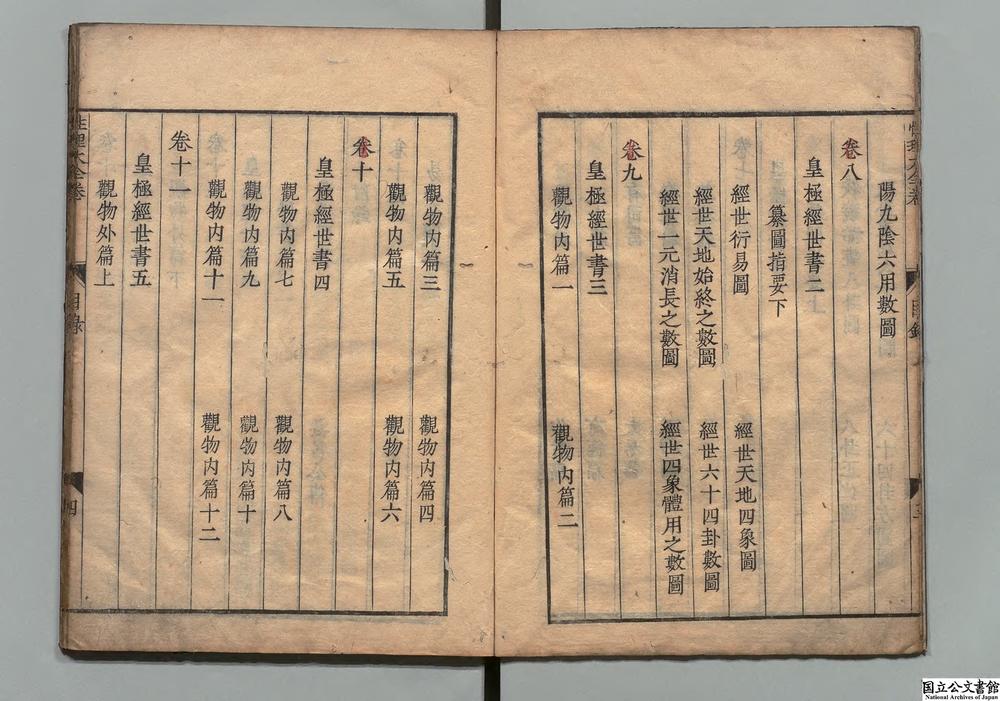 陽九陰六用數圖
卷八
皇極經世書二
纂圖指要下
經世衍易圖
經世天地四象圖
經世天地始終之數圖
經世六十四卦數圖
經世一元消長之數圖
經世四象體用之數圖
卷九
皇極經世書三
觀物内篇一
觀物内篇二
性理大全卷
目錄
觀物内篇三
觀物内篇四
觀物内篇五
觀物内篇六
卷十
皇極經世書四
觀物内篇七
觀物内篇八
觀物内篇九
觀物内篇十
觀物内篇十一
觀物内篇十二
卷十一
皇極經世書五
觀物外篇上
性理大全卷
目錄
四
国立公文書館
National Archives of Japan